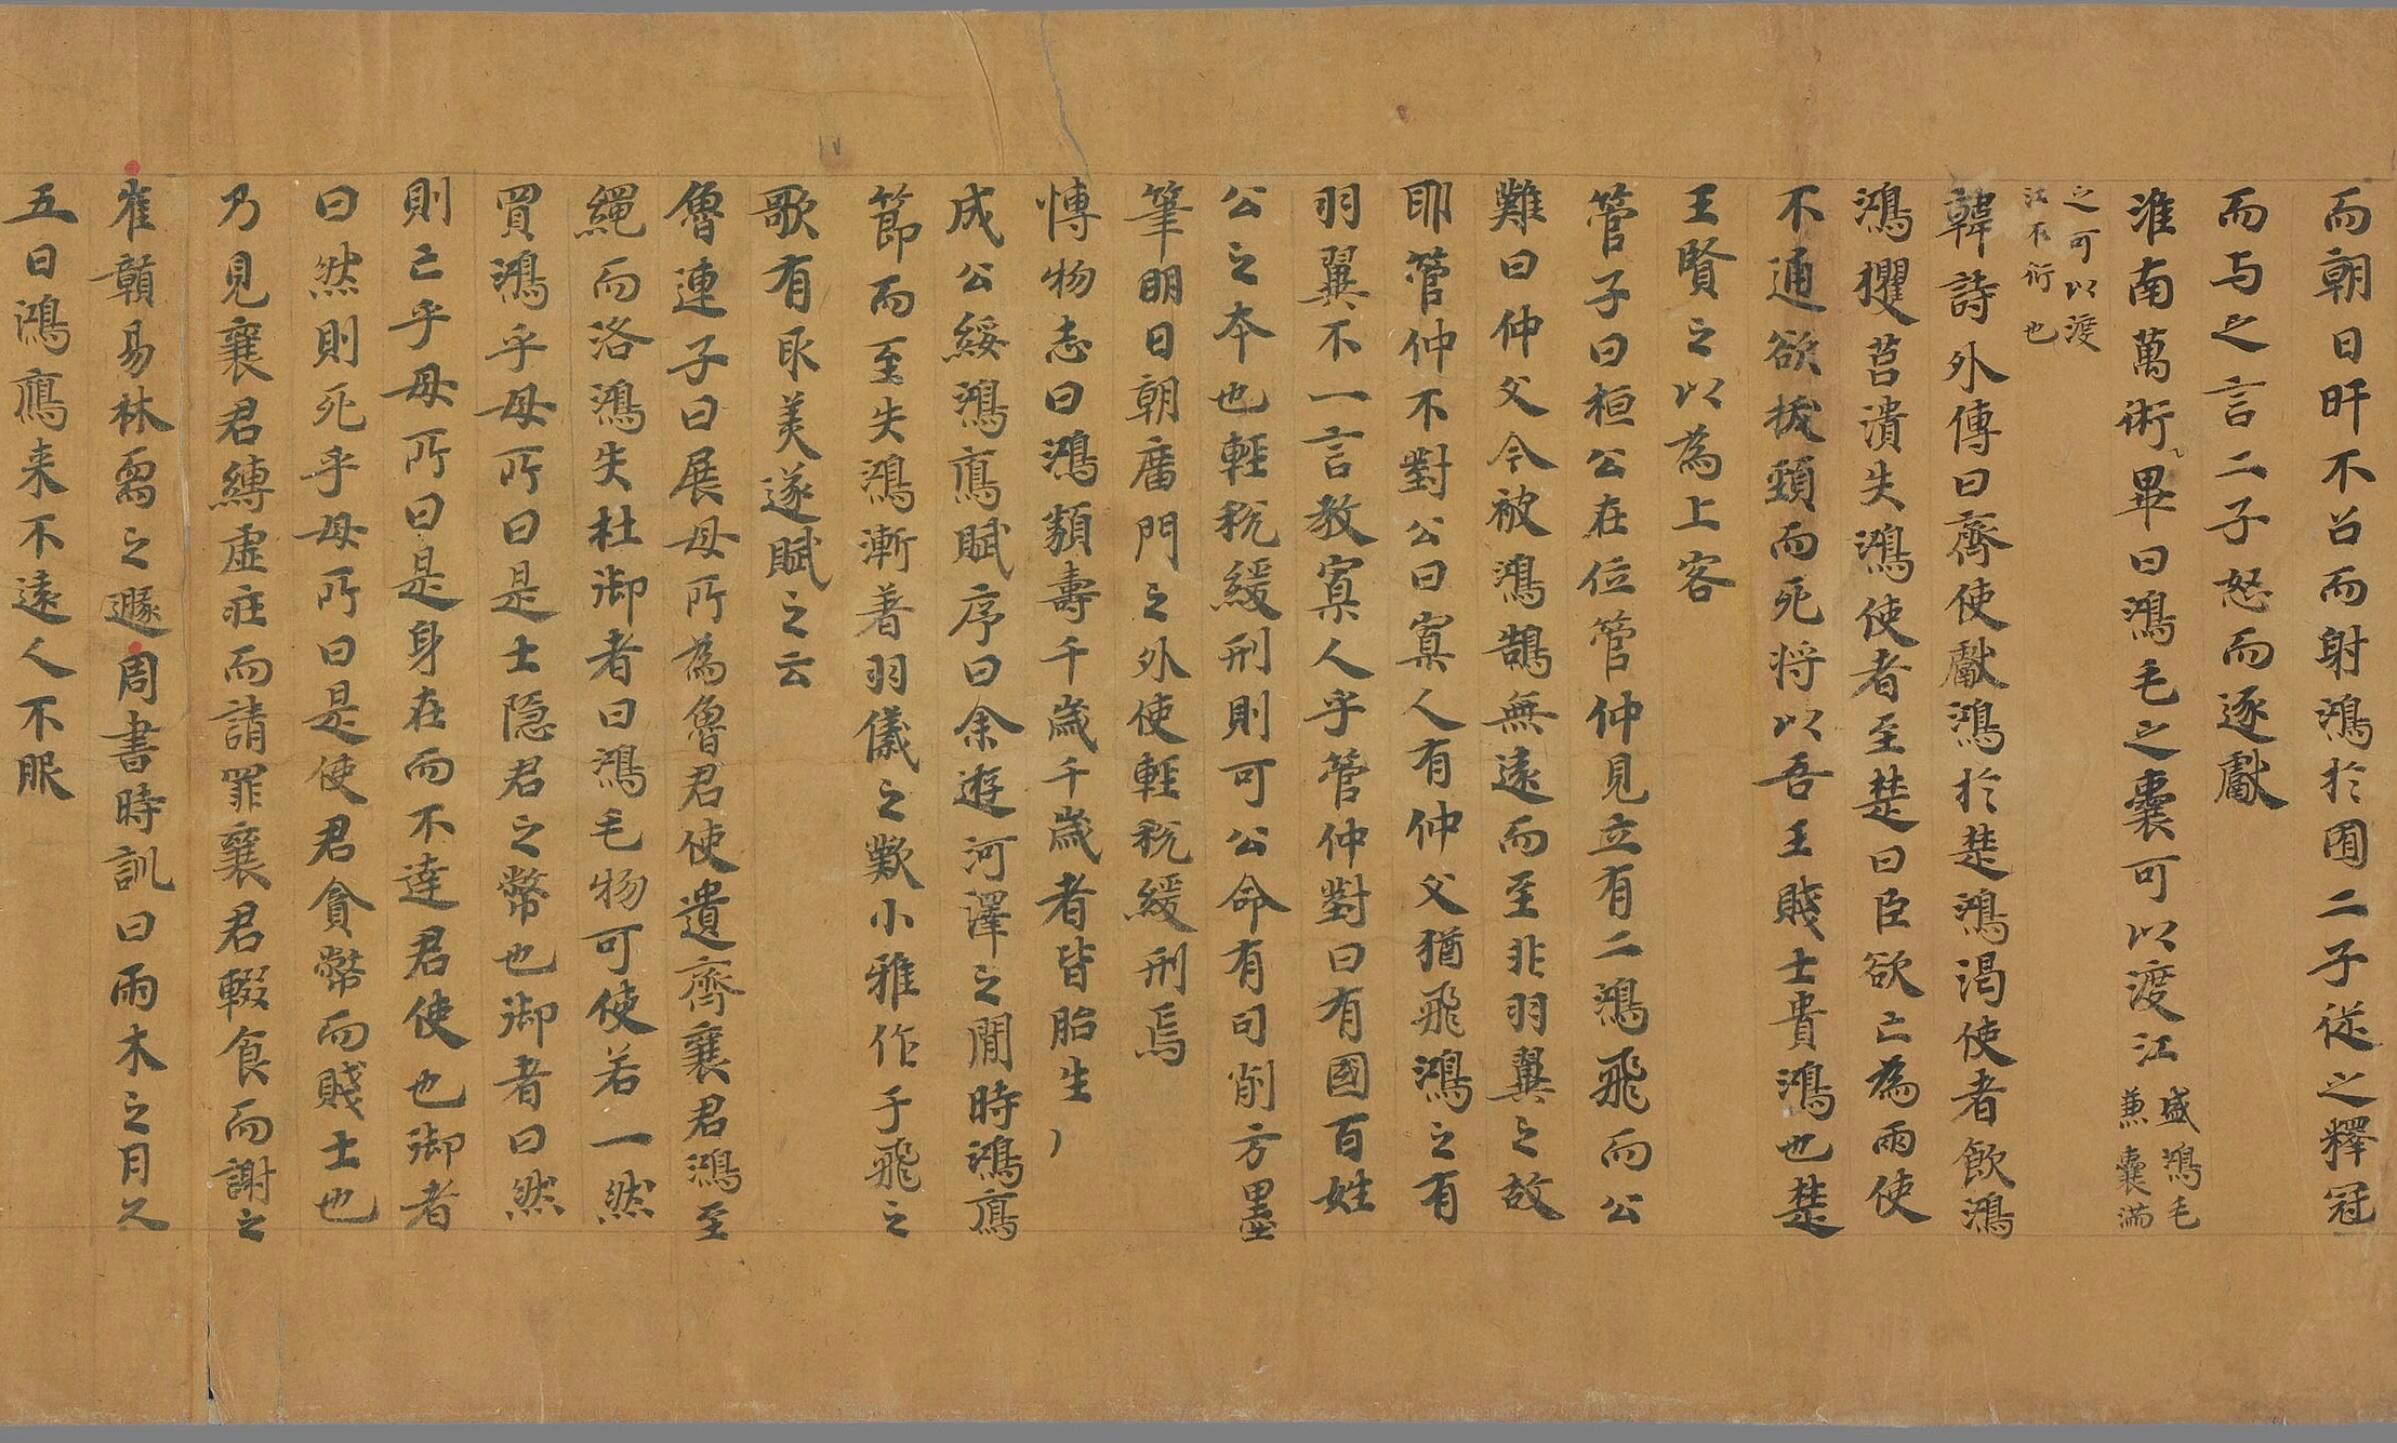 而朝日旰不召而射鴻於囿二子從之釋冠
而与之言二子怒而逐獻
淮南萬術畢曰鴻毛之囊可以渡江盛鴻毛
兼囊滿
之可以渡
江不衍也
韓詩外傳曰齊使獻鴻於楚鴻渴使者飲鴻
鴻玃莒潰失鴻使者至楚曰臣欲亡為兩使
不通欲拔頸而死将以吾王賤士貴鴻也楚
王賢之以為上客
管子曰桓公在位管仲見立有二鴻飛而公
難曰仲父今被鴻鵠無遠而至非羽翼之故
耶管仲不對公曰寡人有仲父猶飛鴻之有
羽翼不一言教寡人乎管仲對曰有國百姓
公之本也輕稅緩刑則可公命有司削方墨
筆明日朝廟門之外使輕稅緩刑焉
愽物志曰鴻類壽千歲千歲者皆胎生
成公綏鴻鴈賦序曰余遊河澤之間時鴻鴈
節而至失鴻漸著羽儀之歎小雅作于飛之
歌有取美遂賦之云
魯連子曰展母所為魯君使遺齊襄君鴻至
繩而洛鴻失杜御者曰鴻毛物可使若一然
買鴻乎母所曰是士隱君之幣也御者曰然
則亡乎母所曰是身在而不達君使也御者
曰然則死乎母所曰是使君貪幣而賤士也
乃見襄君縛虛疰而請罪襄君輟食而謝之
崔贛易林需之遯周書時訓曰雨木之日又
五日鴻鴈来不遠人不服